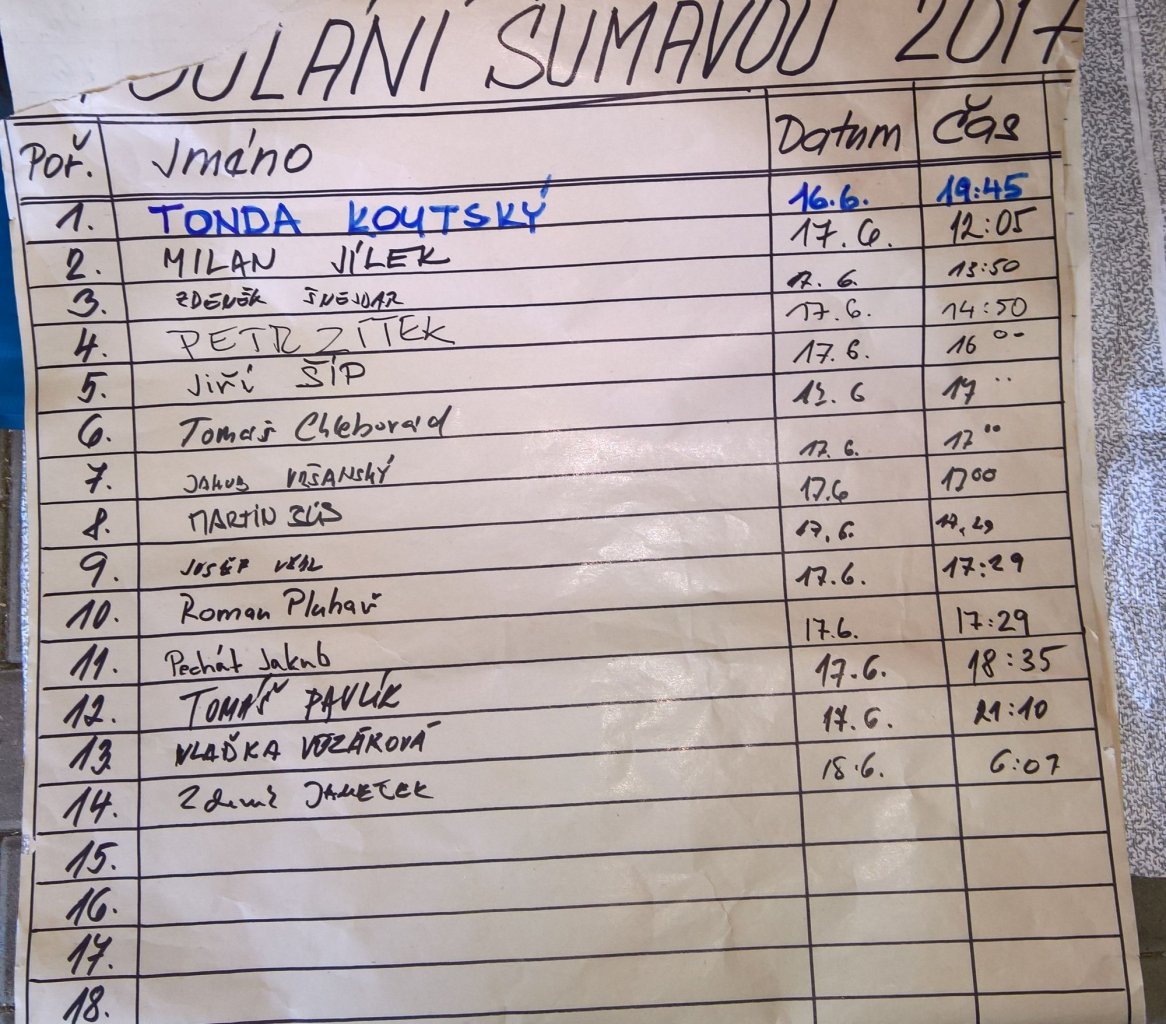 OULÁNÍ ŠUMAVOU 2017
Poř. Jméno Datum Čas
1. TONDA KOUTSKÝ 16.6. 19:45
2. MILAN JÍLEK 17.6. 12:05
3. ZDENĚK ŠNEJDAR 17.6. 13:50
4. PETR ZÍTEK 17.6. 14:50
5. Jiří ŠÍP 17.6. 16 00
6. Tomaš Chleborád 17.6 17 00
7. JAKUB VRŠANSKÝ 17.6. 17 00
8. MARTIN 17.6 17 00
9. JOSEF 17.6. 17,29
10. Roman Pluhař 17.6. 17:29
11. Pechát Jakub 17.6. 17:29
12. TOMÁŠ PAVLÍK 17.6. 18:35
13. VLAĎKA VOZÁROVÁ 17.6. 21:10
14. 18.6. 6:07
15.
16.
17.
18.